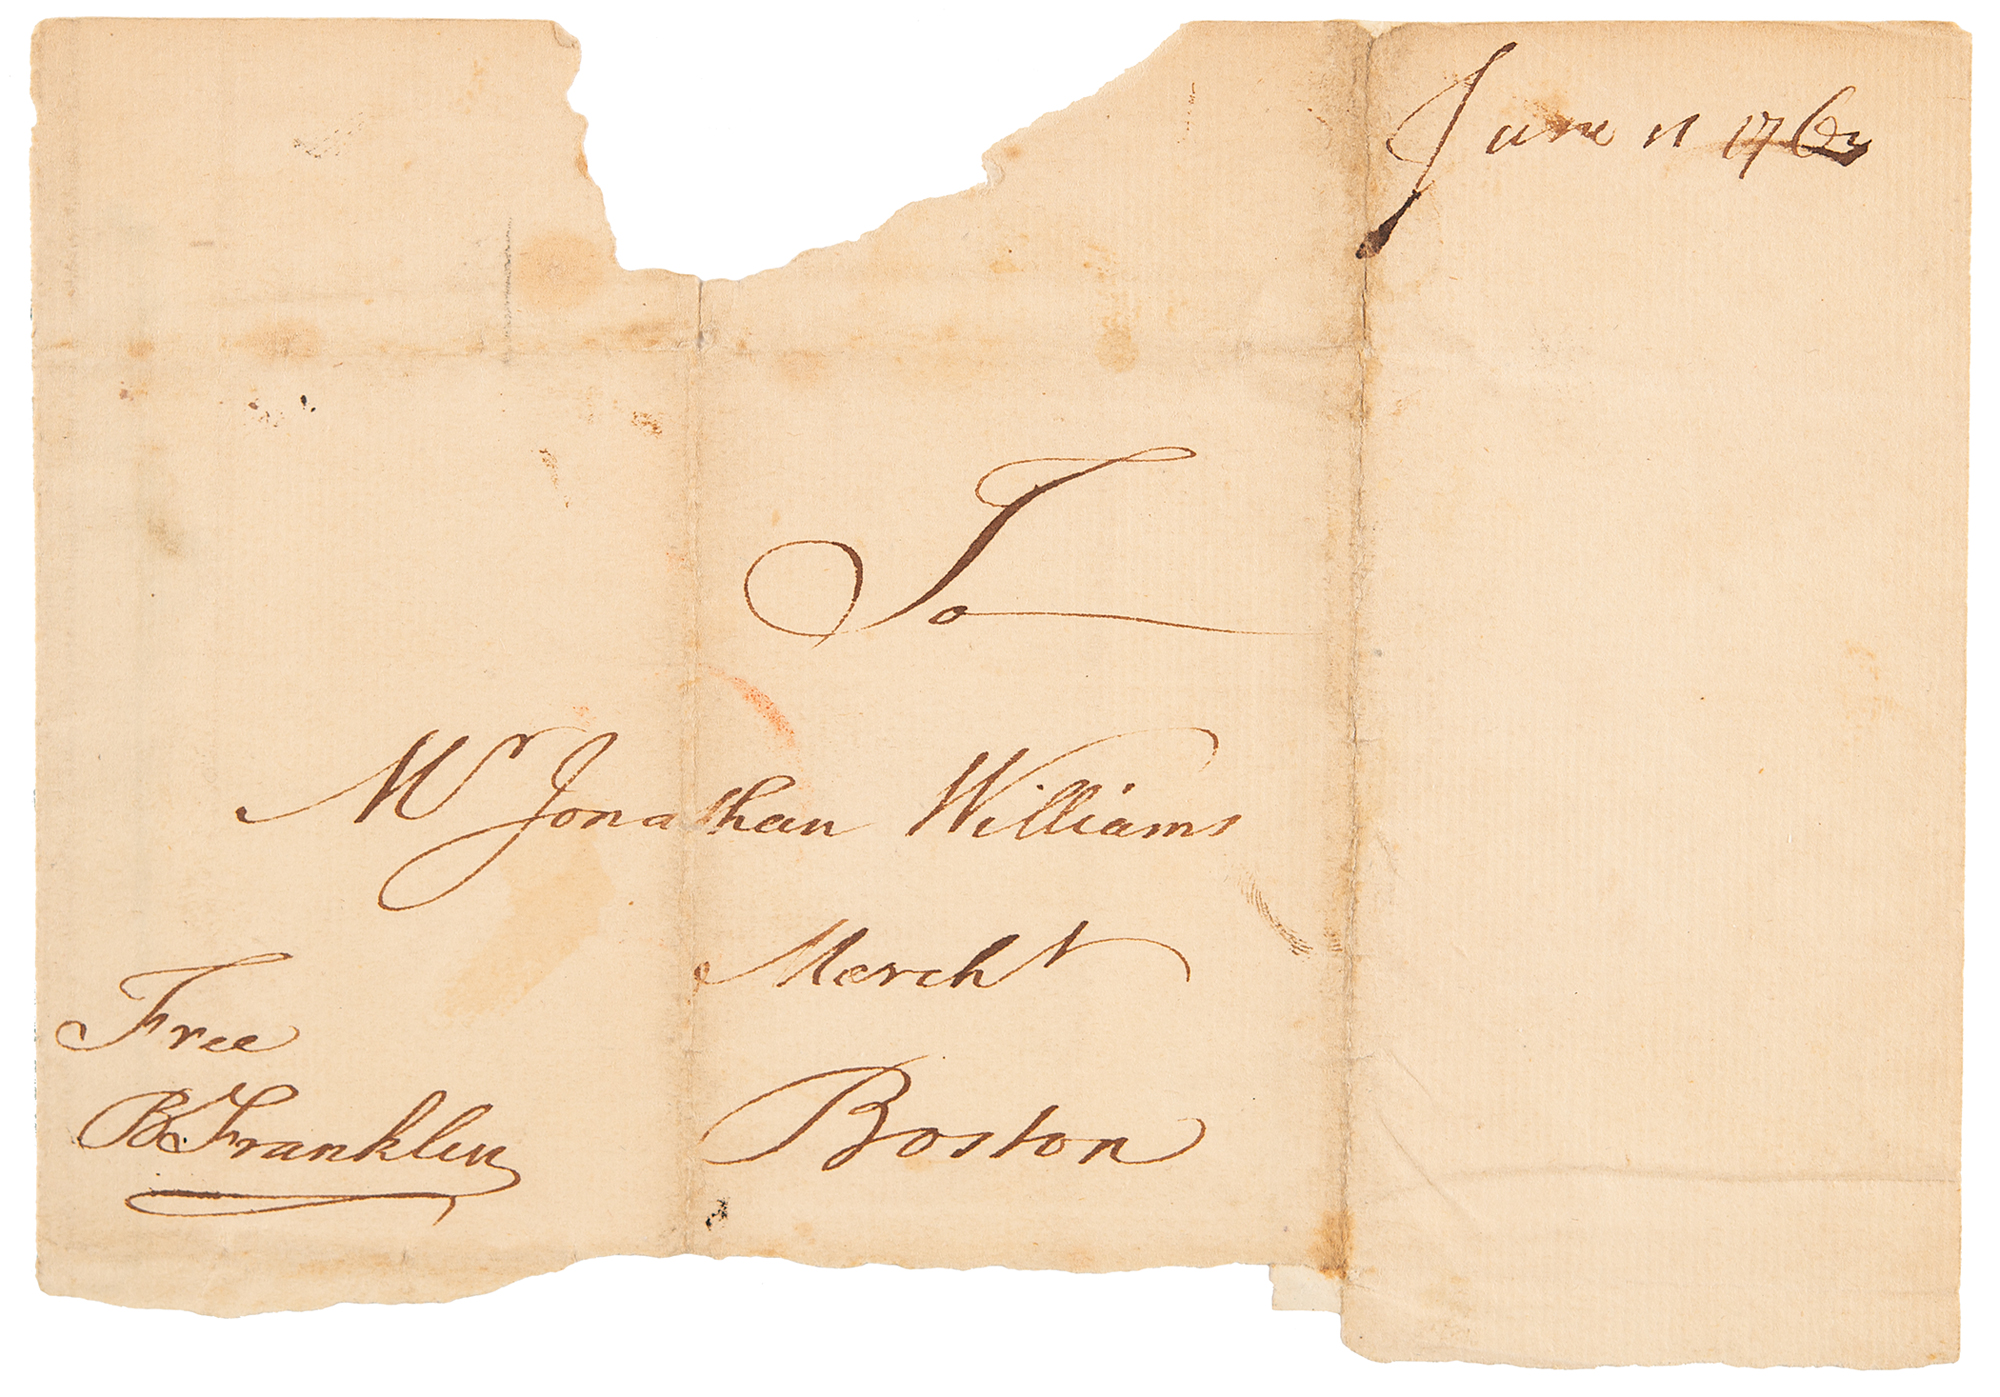 June 11 1763
To
Mr Jonathan Williams
Mercht
Boston
Free
B Franklin